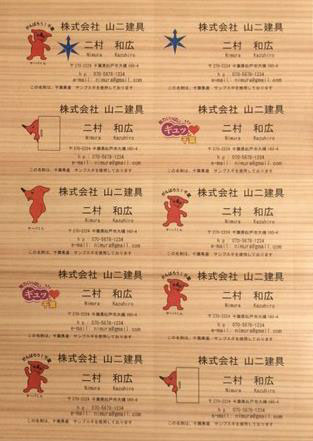 がんばろう！千葉
株式会社 山二建具
二村 和広
Nimura Kazuhiro
〒270-2224 千葉県松戸市大橋 160-4
hp 070-5678-1234
e-mail nimura@gmail.com
この名刺は、千葉県産 サンブスギを使用しております
チーバくん
株式会社 山二建具
二村 和広
Nimura Kazuhiro
〒270-2224 千葉県松戸市大橋 160-4
hp 070-5678-1234
e-mail nimura@gmail.com
この名刺は、千葉県産 サンブスギを使用しております
株式会社 山二建具
二村 和広
Nimura Kazuhiro
〒270-2224 千葉県松戸市大橋 160-4
hp 070-5678-1234
e-mail nimura@gmail.com
この名刺は、千葉県産 サンブスギを使用しております
ギュッと
千葉
株式会社 山二建具
二村 和広
Nimura Kazuhiro
〒270-2224 千葉県松戸市大橋 160-4
hp 070-5678-1234
e-mail nimura@gmail.com
この名刺は、千葉県産 サンブスギを使用しております
株式会社 山二建具
二村 和広
Nimura Kazuhiro
〒270-2224 千葉県松戸市大橋 160-4
hp 070-5678-1234
e-mail nimura@gmail.com
チーバくん
この名刺は、千葉県産 サンブスギを使用しております
がんばろう！千葉
株式会社 山二建具
二村 和広
Nimura Kazuhiro
〒270-2224 千葉県松戸市大橋 160-4
hp 070-5678-1234
e-mail nimura@gmail.com
チーバくん
この名刺は、千葉県産 サンブスギを使用しております
ギュッと
千葉
株式会社 山二建具
二村 和広
Nimura Kazuhiro
〒270-2224 千葉県松戸市大橋 160-4
hp 070-5678-1234
e-mail nimura@gmail.com
この名刺は、千葉県産 サンブスギを使用しております
がんばろう！千葉
株式会社 山二建具
二村 和広
Nimura Kazuhiro
〒270-2224 千葉県松戸市大橋 160-4
hp 070-5678-1234
e-mail nimura@gmail.com
チーバくん
この名刺は、千葉県産 サンブスギを使用しております
がんばろう！千葉
株式会社 山二建具
二村 和広
Nimura Kazuhiro
〒270-2224 千葉県松戸市大橋 160-4
hp 070-5678-1234
e-mail nimura@gmail.com
チーバくん
この名刺は、千葉県産 サンブスギを使用しております
株式会社 山二建具
二村 和広
Nimura Kazuhiro
〒270-2224 千葉県松戸市大橋 160-4
hp 070-5678-1234
e-mail nimura@gmail.com
この名刺は、千葉県産 サンブスギを使用しております